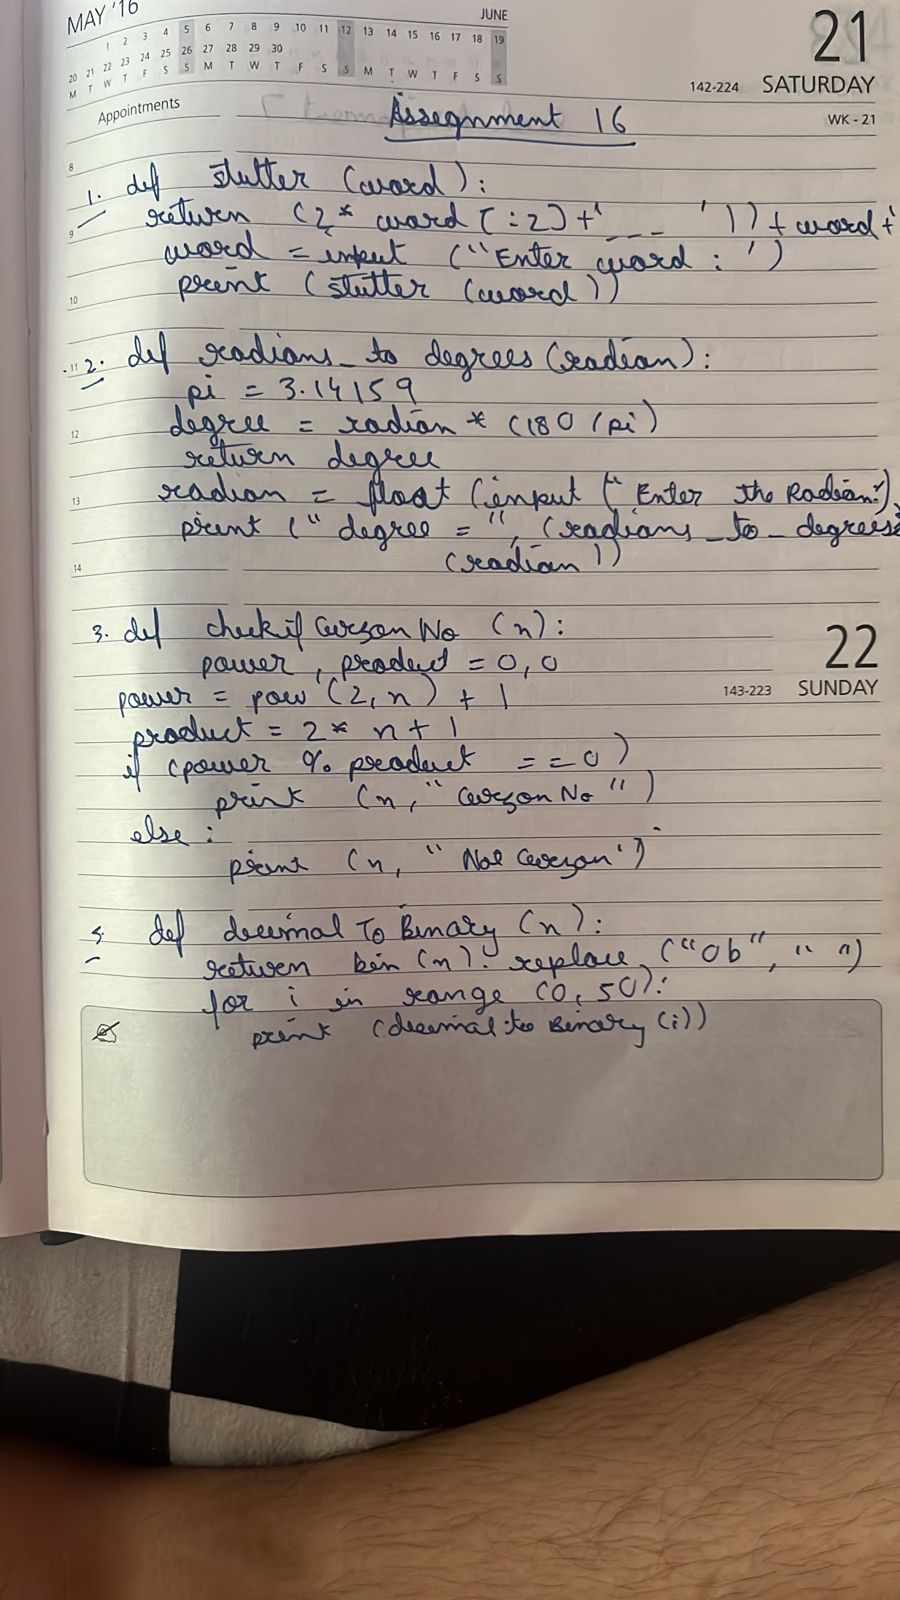 MAY '16
JUNE
1 2 3 4 5 6 7 8 9 10 11 12 13 14 15 16 17 18 19
20 21 22 23 24 25 26 27 28 29 30
M T W T F S S M T W T F S S M T W T F S S
21
142-224 SATURDAY
Appointments
WK - 21
Assegnment 16
8
1. def stutter (word):
9
return (2* word [:2] +' _ _ _ ')) + word +'
word = input ("Enter word : ')
10
print (stutter (word))
11
2. def radians_to degrees (radian):
pi = 3.14159
12
degree = radian * (180 / pi)
return degree
13
radian = float (input ("Enter the Radian:')
print (" degree = ", (radians_to_degrees
14
(radian))
22
143-223 SUNDAY
3. def checkif Curzon No (n):
power, product = 0,0
power = pow (2,n) + 1
product = 2* n+1
if (power % product == 0)
print (n, " Curzon No ")
else :
print (n, " Not Curzon')
def decimal To Binary (n):
return bin (n). replace ("0b", " ")
for i in range (0, 50):
print (decimal to Binary (i))